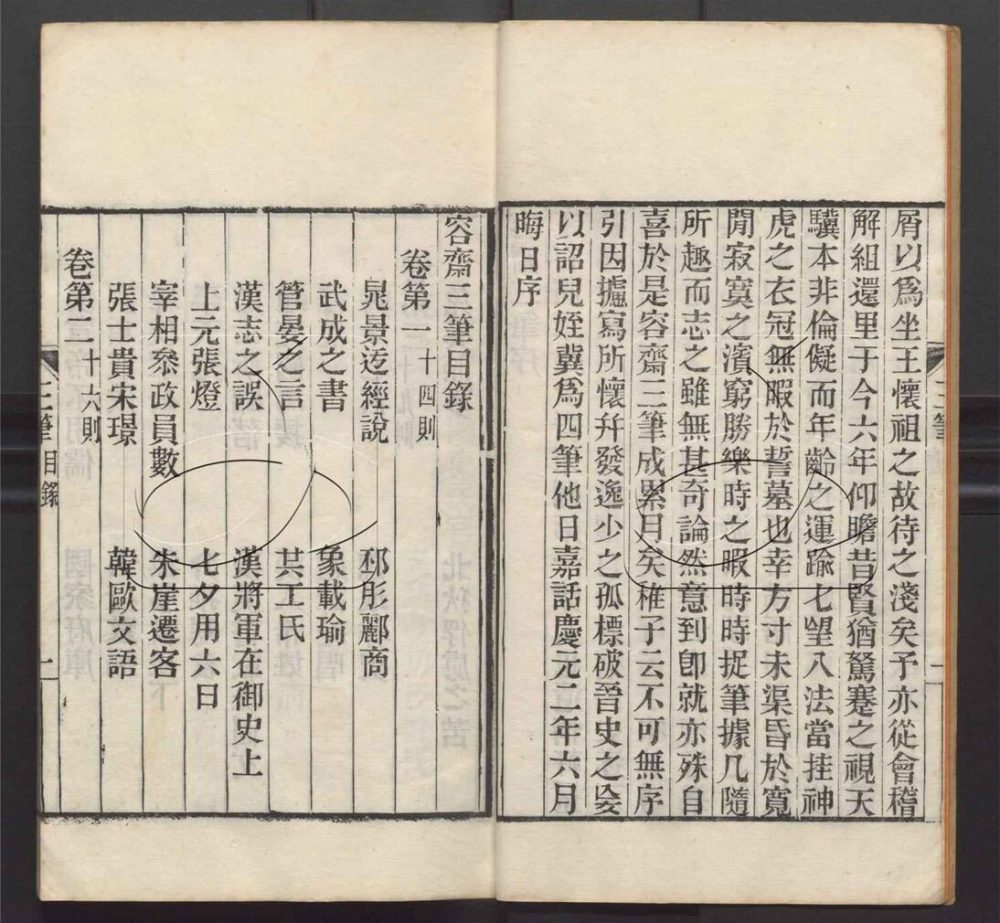 屑以爲坐王懷祖之故待之淺矣予亦從會稽
解組還里于今六年仰瞻昔賢猶駑蹇之視天
驥本非倫儗而年齡之運踰七望八法當挂神
虎之衣冠無暇於誓墓也幸方寸未渠昏於寬
閒寂寞之濱窮勝樂時之暇時時捉筆據几隨
所趣而志之雖無甚奇論然意到卽就亦殊自
喜於是容齋三筆成累月矣稚子云不可無序
引因攄寫所懷幷發逸少之孤標破晉史之妄
以詔兒姪冀爲四筆他日嘉話慶元二年六月
晦日序
容齋三筆目錄
卷第一十四則
晁景迂經說 邳彤酈商
武成之書 象載瑜
管晏之言 共工氏
漢志之誤 漢將軍在御史上
上元張燈 七夕用六日
宰相叅政員數 朱崖遷客
張士貴宋璟 韓歐文語
卷第二十六則
三筆目錄 一